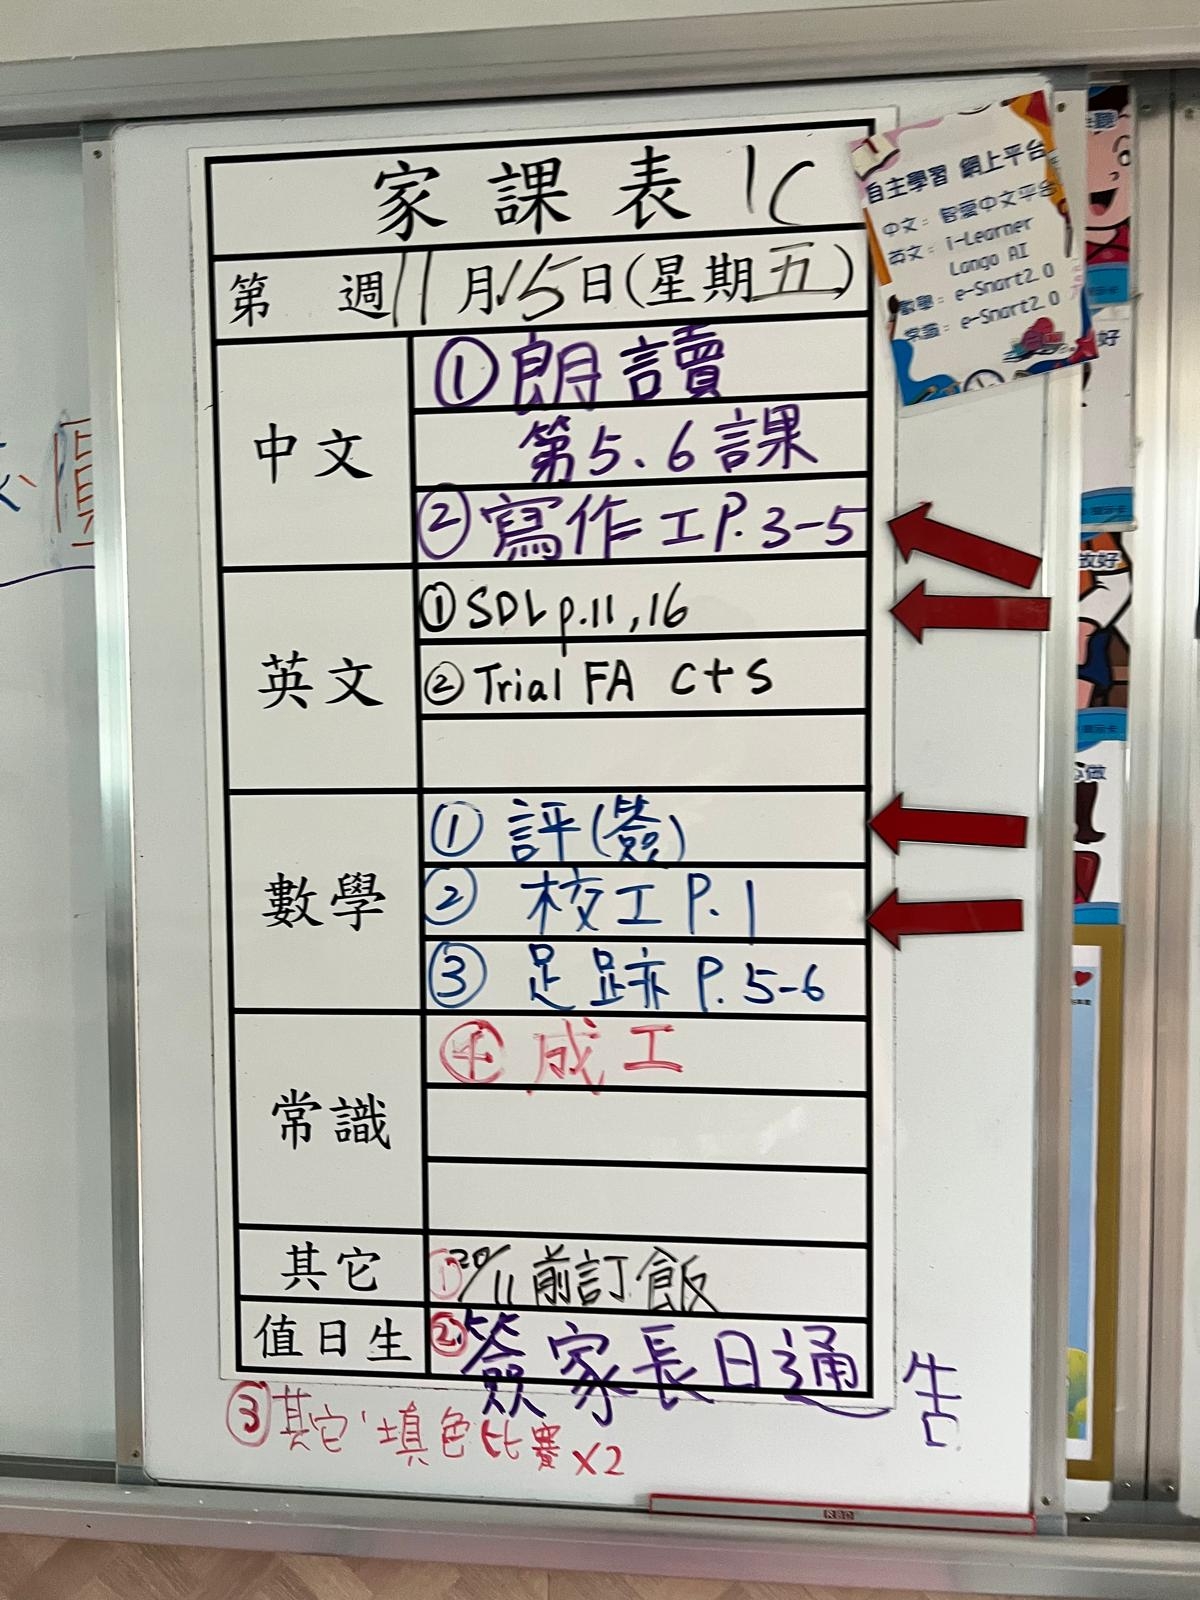 家課表 1C
第 週 11月15日(星期五)
中文
①朗讀
第5、6課
②寫作工P.3-5
英文
①SDL p.11,16
②Trial FA C+S
數學
①評(簽)
②校工P.1
③足跡P.5-6
常識
成工
其它
①20/11前訂飯
值日生
②簽家長日通告
③其它:填色比賽x2
自主學習 網上平台
中文:智愛中文平台
英文:i-Learner
Lango AI
數學:e-Smart2.0
常識:e-Smart2.0
RBD